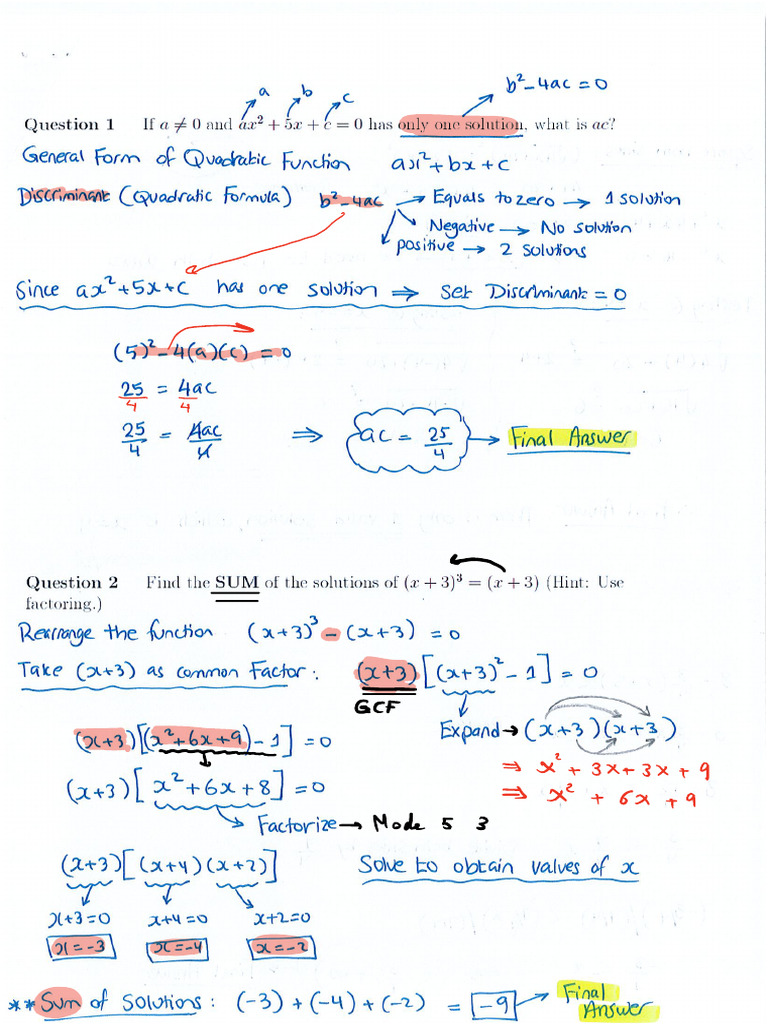 a b c b² - 4ac = 0
Question 1 If a ≠ 0 and ax² + 5x + c = 0 has only one solution, what is ac?
General Form of Quadratic Function ax² + bx + c
Discriminant (Quadratic Formula) b² - 4ac → Equals to zero → 1 solution
Negative → No solution
positive → 2 solutions
Since ax² + 5x + c has one solution ⇒ Set Discriminant = 0
(5)² - 4(a)(c) = 0
25/4 = 4ac/4
25/4 = 4ac/4 ⇒ ac = 25/4 → Final Answer
Question 2 Find the SUM of the solutions of (x + 3)³ = (x + 3) (Hint: Use
factoring.)
Rearrange the function (x+3)³ - (x+3) = 0
Take (x+3) as common Factor: (x+3)[(x+3)² - 1] = 0
GCF
Expand → (x+3)(x+3)
(x+3)[(x²+6x+9) - 1] = 0
⇒ x² + 3x + 3x + 9
(x+3)[x² + 6x + 8] = 0
⇒ x² + 6x + 9
Factorize → Mode 5 3
(x+3)[(x+4)(x+2)] Solve to obtain values of x
x+3=0 x+4=0 x+2=0
x=-3 x=-4 x=-2
** Sum of Solutions: (-3) + (-4) + (-2) = -9 → Final
Answer